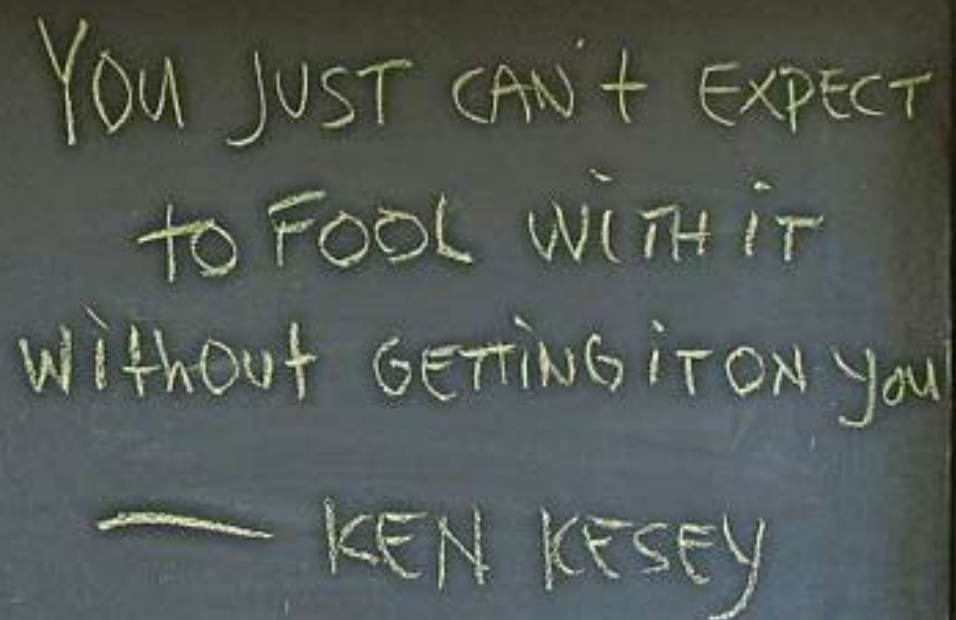 YOU JUST CAN't EXPECT
to FOOL WITH iT
without GETTING iT ON you
— KEN KESEY